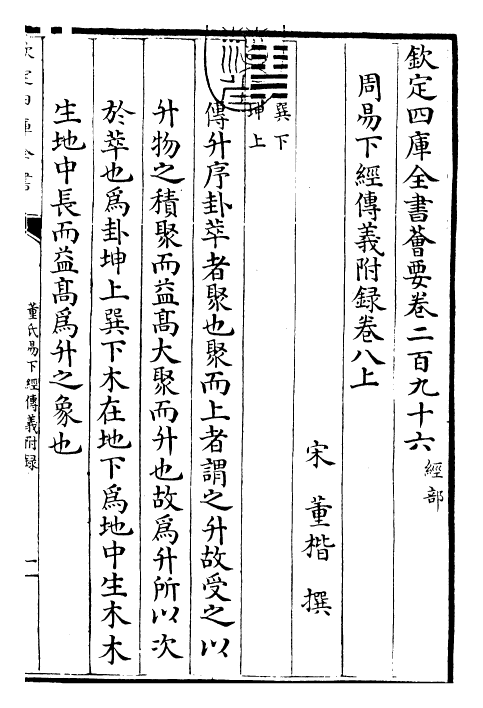 欽定四庫全書薈要卷二百九十六 經部
周易下經傳義附録卷八上
宋 董楷 撰
巽下
坤上
傳升序卦萃者聚也聚而上者謂之升故受之以
升物之積聚而益髙大聚而升也故爲升所以次
於萃也爲卦坤上巽下木在地下爲地中生木木
生地中長而益髙爲升之象也
欽定四庫全書
董氏易下經傳義附録
一